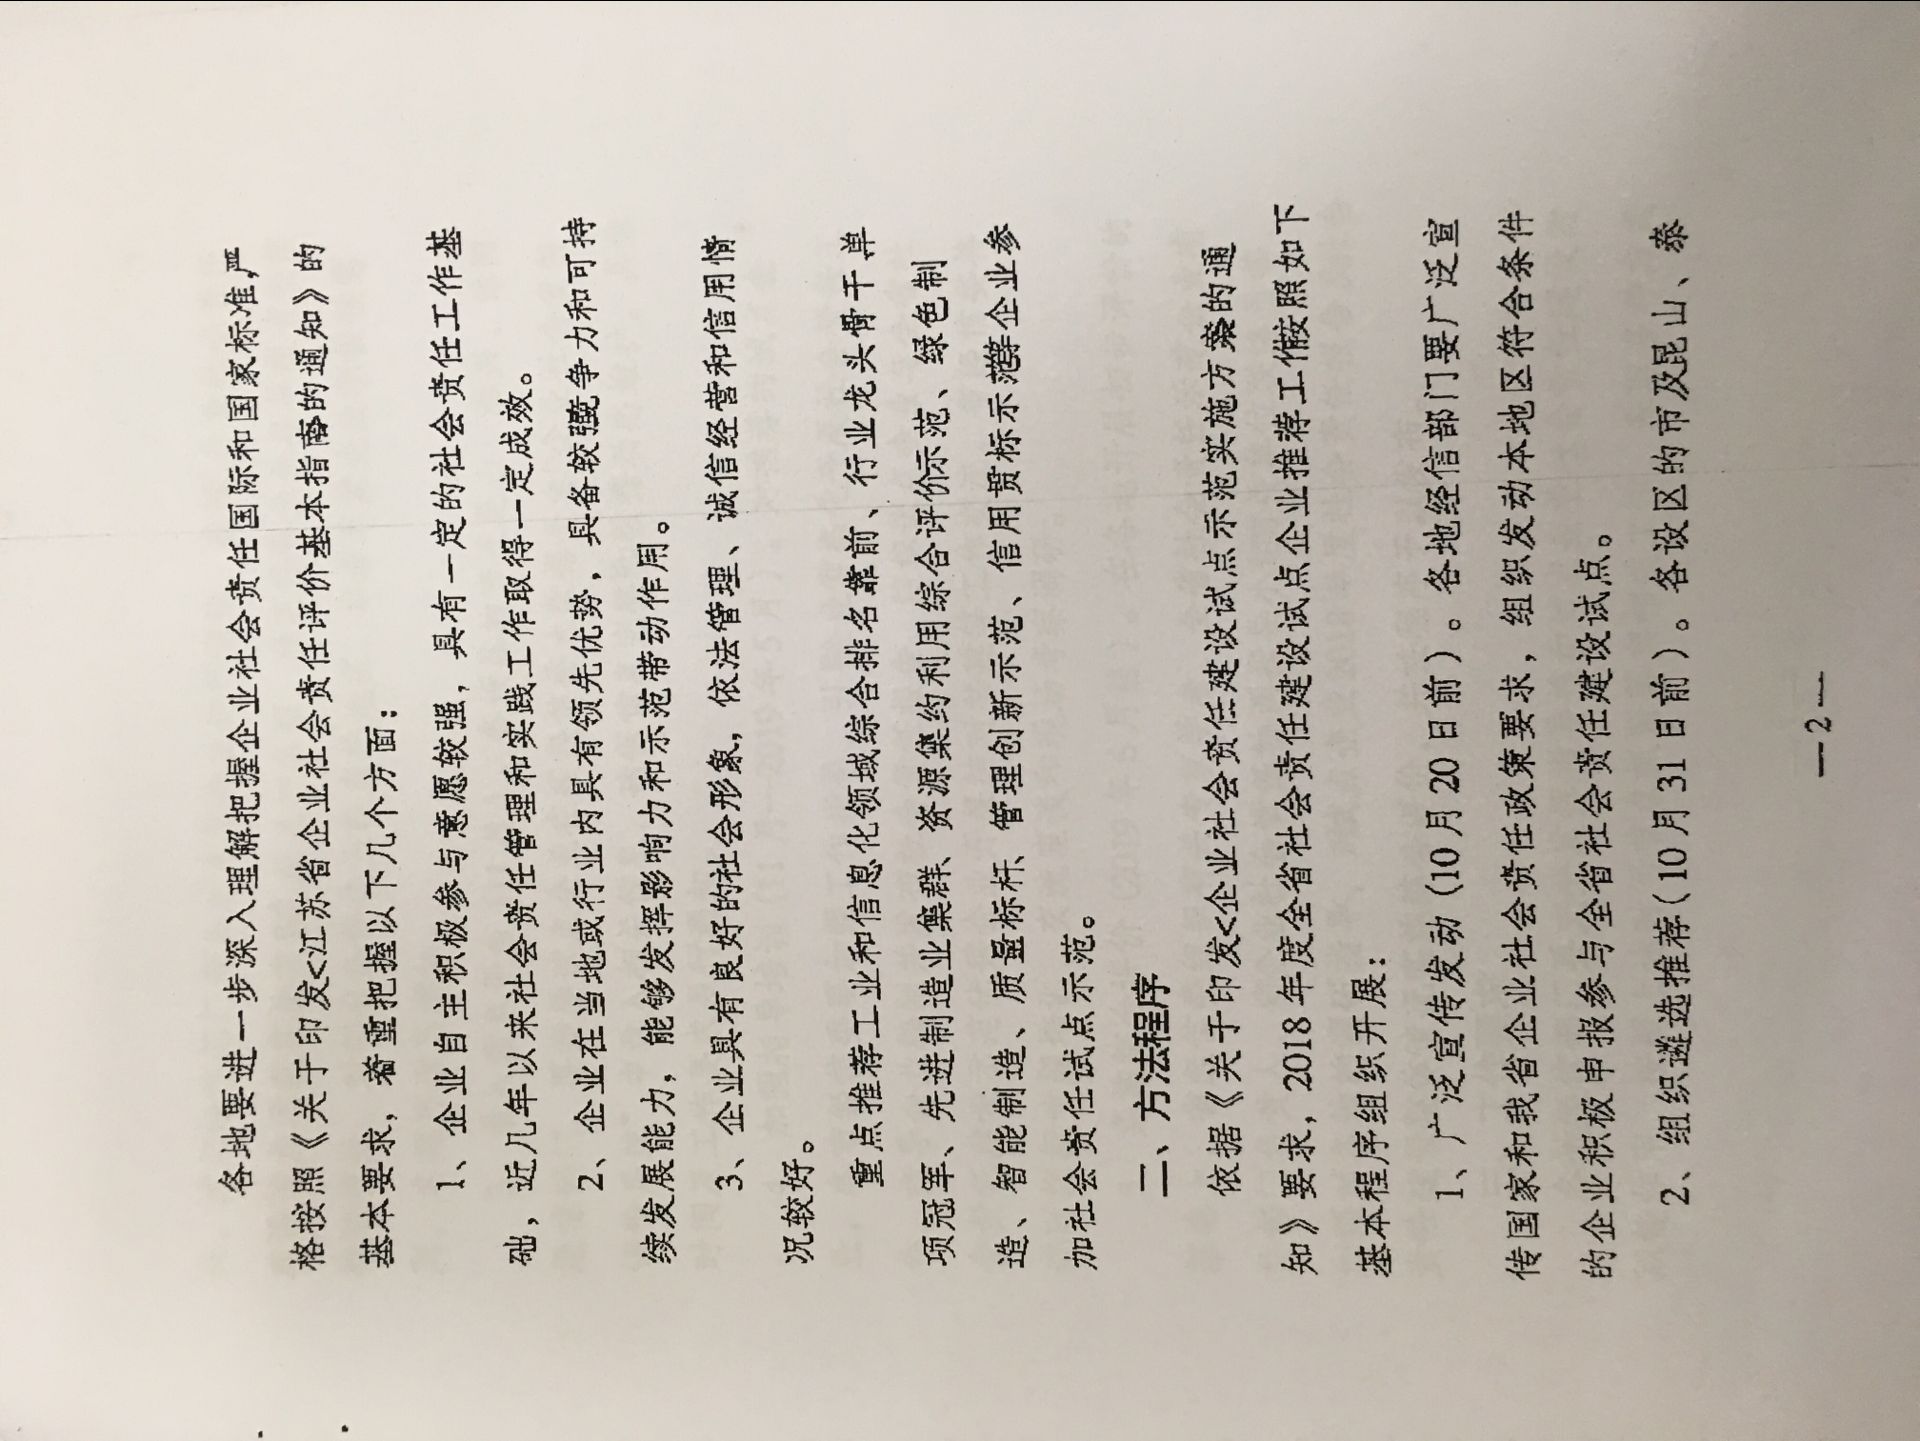 各地要进一步深入理解把握企业社会责任国际和国家标准,严
格按照《关于印发<江苏省企业社会责任评价基本指南的通知》的
基本要求，着重把握以下几个方面：
1、企业自主积极参与意愿较强，具有一定的社会责任工作基
础，近几年以来社会责任管理和实践工作取得一定成效。
2、企业在当地或行业内具有领先优势，具备较强竞争力和可持
续发展能力，能够发挥影响力和示范带动作用。
3、企业具有良好的社会形象，依法管理、诚信经营和信用情
况较好。
重点推荐工业和信息化领域综合排名靠前、行业龙头骨干、单
项冠军、先进制造业集群、资源集约利用综合评价示范、绿色制
造、智能制造、质量标杆、管理创新示范、信用贯标示范等企业参
加社会责任试点示范。
二、方法程序
依据《关于印发<企业社会责任建设试点示范实施方案的通
知》要求，2018年度全省社会责任建设试点企业推荐工作按照如下
基本程序组织开展：
1、广泛宣传发动（10月20日前）。各地经信部门要广泛宣
传国家和我省企业社会责任政策要求，组织发动本地区符合条件
的企业积极申报参与全省社会责任建设试点。
2、组织遴选推荐（10月31日前）。各设区的市及昆山、泰
—2—